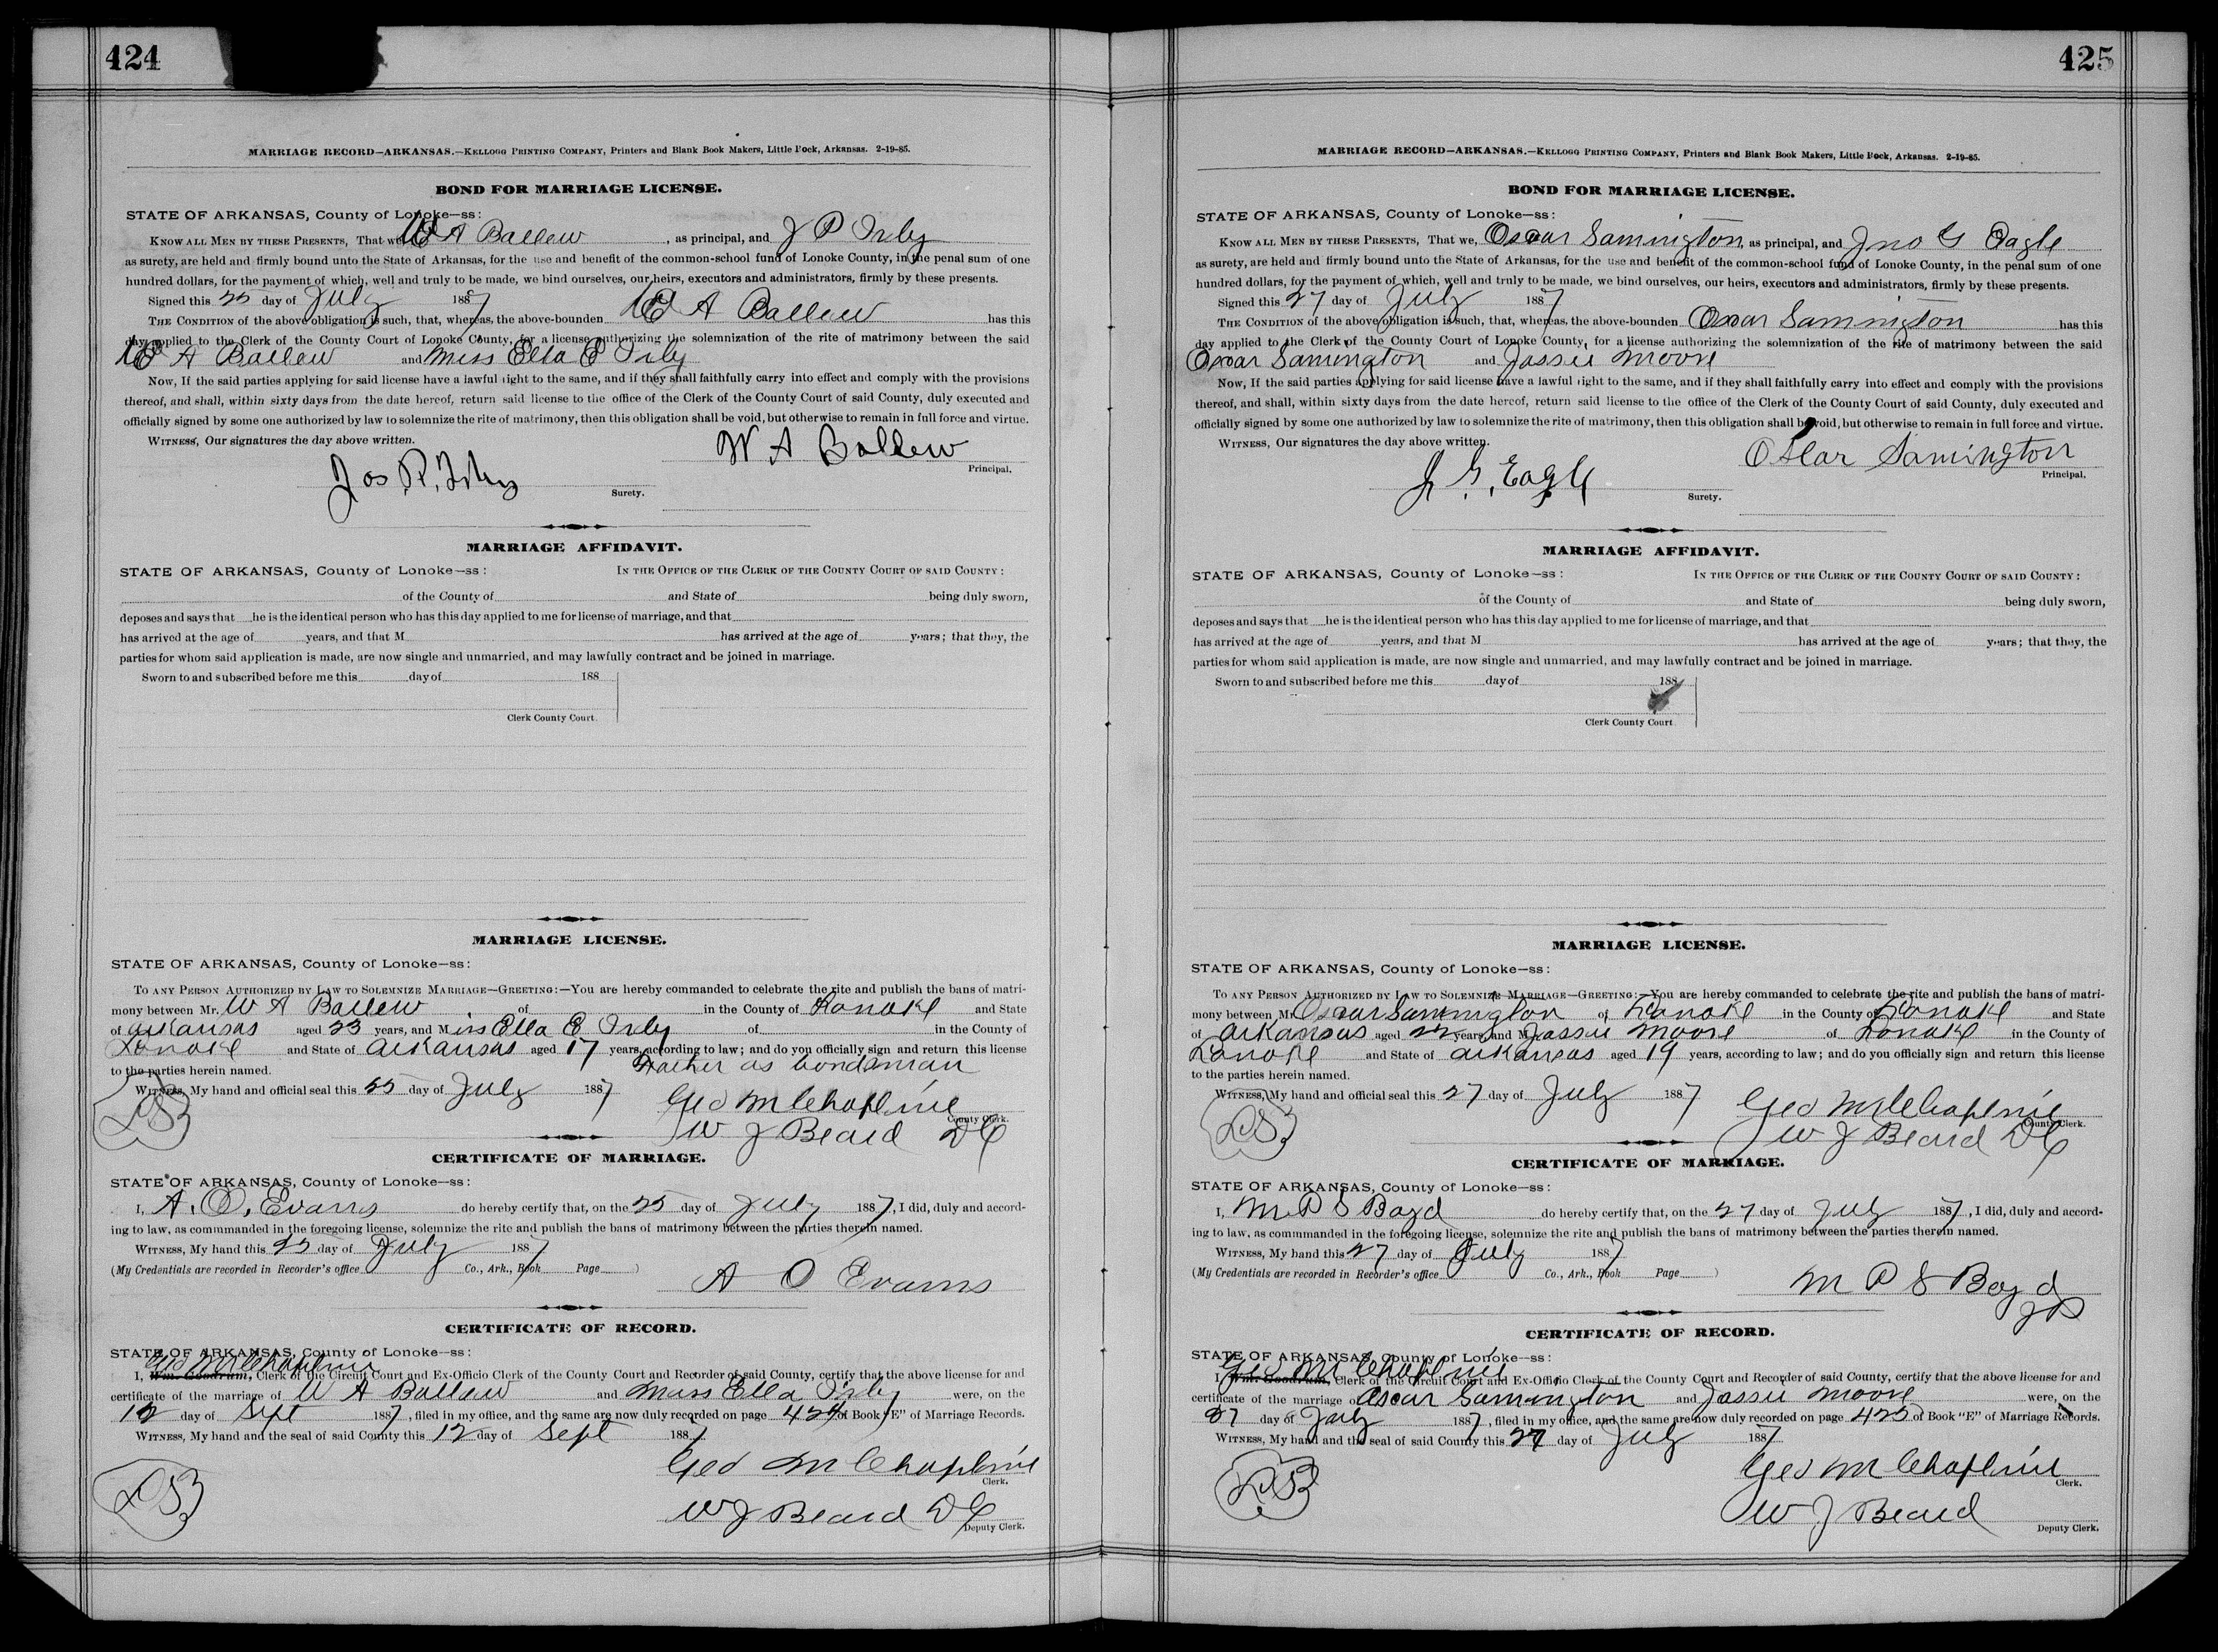 424
MARRIAGE RECORD—ARKANSAS.—KELLOGG PRINTING COMPANY, Printers and Blank Book Makers, Little Rock, Arkansas. 2-19-85.
BOND FOR MARRIAGE LICENSE.
STATE OF ARKANSAS, County of Lonoke—ss:
KNOW ALL MEN BY THESE PRESENTS, That we W A Ballew, as principal, and J P Irby
as surety, are held and firmly bound unto the State of Arkansas, for the use and benefit of the common-school fund of Lonoke County, in the penal sum of one
hundred dollars, for the payment of which, well and truly to be made, we bind ourselves, our heirs, executors and administrators, firmly by these presents.
Signed this 25 day of July 1887
THE CONDITION of the above obligation is such, that, whereas, the above-bounden W A Ballew has this
day applied to the Clerk of the County Court of Lonoke County, for a license authorizing the solemnization of the rite of matrimony between the said
W A Ballew and Miss Ella E Irby
Now, If the said parties applying for said license have a lawful right to the same, and if they shall faithfully carry into effect and comply with the provisions
thereof, and shall, within sixty days from the date hereof, return said license to the office of the Clerk of the County Court of said County, duly executed and
officially signed by some one authorized by law to solemnize the rite of matrimony, then this obligation shall be void, but otherwise to remain in full force and virtue.
WITNESS, Our signatures the day above written.
W A Ballew
Principal.
Jos. P. Irby
Surety.
MARRIAGE AFFIDAVIT.
STATE OF ARKANSAS, County of Lonoke—ss: IN THE OFFICE OF THE CLERK OF THE COUNTY COURT OF SAID COUNTY:
of the County of and State of being duly sworn,
deposes and says that he is the identical person who has this day applied to me for license of marriage, and that
has arrived at the age of years, and that M has arrived at the age of years; that they, the
parties for whom said application is made, are now single and unmarried, and may lawfully contract and be joined in marriage.
Sworn to and subscribed before me this day of 188
Clerk County Court.
MARRIAGE LICENSE.
STATE OF ARKANSAS, County of Lonoke—ss:
TO ANY PERSON AUTHORIZED BY LAW TO SOLEMNIZE MARRIAGE—GREETING:—You are hereby commanded to celebrate the rite and publish the bans of matri-
mony between Mr. W A Ballew of in the County of Lonoke and State
of Arkansas aged 23 years, and Miss Ella E Irby of in the County of
Lonoke and State of Arkansas aged 17 years, according to law; and do you officially sign and return this license
to the parties herein named. Father as bondsman
WITNESS, My hand and official seal this 25 day of July 1887
LS
Geo M Chapline
County Clerk.
W J Beard DC
CERTIFICATE OF MARRIAGE.
STATE OF ARKANSAS, County of Lonoke—ss:
I, A. O. Evans do hereby certify that, on the 25 day of July 1887, I did, duly and accord-
ing to law, as commmanded in the foregoing license, solemnize the rite and publish the bans of matrimony between the parties therein named.
WITNESS, My hand this 25 day of July 1887
(My Credentials are recorded in Recorder's office Co., Ark., Book Page )
A O Evans
CERTIFICATE OF RECORD.
STATE OF ARKANSAS, County of Lonoke—ss:
Geo M Chapline
I, Wm. Goodrum, Clerk of the Circuit Court and Ex-Officio Clerk of the County Court and Recorder of said County, certify that the above license for and
certificate of the marriage of W A Ballew and Miss Ella Irby were, on the
12 day of Sept 1887, filed in my office, and the same are now duly recorded on page 424 of Book "E" of Marriage Records.
WITNESS, My hand and the seal of said County this 12 day of Sept 1887
LS
Geo M Chapline
Clerk.
W J Beard DC
Deputy Clerk.
425
MARRIAGE RECORD—ARKANSAS.—KELLOGG PRINTING COMPANY, Printers and Blank Book Makers, Little Rock, Arkansas. 2-19-85.
BOND FOR MARRIAGE LICENSE.
STATE OF ARKANSAS, County of Lonoke—ss:
KNOW ALL MEN BY THESE PRESENTS, That we, Oscar Samington, as principal, and Jno G Eagle
as surety, are held and firmly bound unto the State of Arkansas, for the use and benefit of the common-school fund of Lonoke County, in the penal sum of one
hundred dollars, for the payment of which, well and truly to be made, we bind ourselves, our heirs, executors and administrators, firmly by these presents.
Signed this 27 day of July 1887
THE CONDITION of the above obligation is such, that, whereas, the above-bounden Oscar Samington has this
day applied to the Clerk of the County Court of Lonoke County, for a license authorizing the solemnization of the rite of matrimony between the said
Oscar Samington and Jassie Moore
Now, If the said parties applying for said license have a lawful right to the same, and if they shall faithfully carry into effect and comply with the provisions
thereof, and shall, within sixty days from the date hereof, return said license to the office of the Clerk of the County Court of said County, duly executed and
officially signed by some one authorized by law to solemnize the rite of matrimony, then this obligation shall be void, but otherwise to remain in full force and virtue.
WITNESS, Our signatures the day above written.
Oscar Samington
Principal.
J. G. Eagle
Surety.
MARRIAGE AFFIDAVIT.
STATE OF ARKANSAS, County of Lonoke—ss: IN THE OFFICE OF THE CLERK OF THE COUNTY COURT OF SAID COUNTY:
of the County of and State of being duly sworn,
deposes and says that he is the identical person who has this day applied to me for license of marriage, and that
has arrived at the age of years, and that M has arrived at the age of years; that they, the
parties for whom said application is made, are now single and unmarried, and may lawfully contract and be joined in marriage.
Sworn to and subscribed before me this day of 188
Clerk County Court.
MARRIAGE LICENSE.
STATE OF ARKANSAS, County of Lonoke—ss:
TO ANY PERSON AUTHORIZED BY LAW TO SOLEMNIZE MARRIAGE—GREETING:—You are hereby commanded to celebrate the rite and publish the bans of matri-
mony between Mr. Oscar Samington of Lonoke in the County of Lonoke and State
of Arkansas aged 22 years, and M Jassie Moore of Lonoke in the County of
Lonoke and State of Arkansas aged 19 years, according to law; and do you officially sign and return this license
to the parties herein named.
WITNESS, My hand and official seal this 27 day of July 1887
LS
Geo M Chapline
County Clerk.
W J Beard DC
CERTIFICATE OF MARRIAGE.
STATE OF ARKANSAS, County of Lonoke—ss:
I, M P S Boyd do hereby certify that, on the 27 day of July 1887, I did, duly and accord-
ing to law, as commmanded in the foregoing license, solemnize the rite and publish the bans of matrimony between the parties therein named.
WITNESS, My hand this 27 day of July 1887
(My Credentials are recorded in Recorder's office Co., Ark., Book Page )
M P S Boyd
JP
CERTIFICATE OF RECORD.
STATE OF ARKANSAS, County of Lonoke—ss:
Geo M Chapline
I, Wm. Goodrum, Clerk of the Circuit Court and Ex-Officio Clerk of the County Court and Recorder of said County, certify that the above license for and
certificate of the marriage of Oscar Samington and Jassie Moore were, on the
27 day of July 1887, filed in my office, and the same are now duly recorded on page 425 of Book "E" of Marriage Records.
WITNESS, My hand and the seal of said County this 27 day of July 1887
LS
Geo M Chapline
Clerk.
W J Beard
Deputy Clerk.